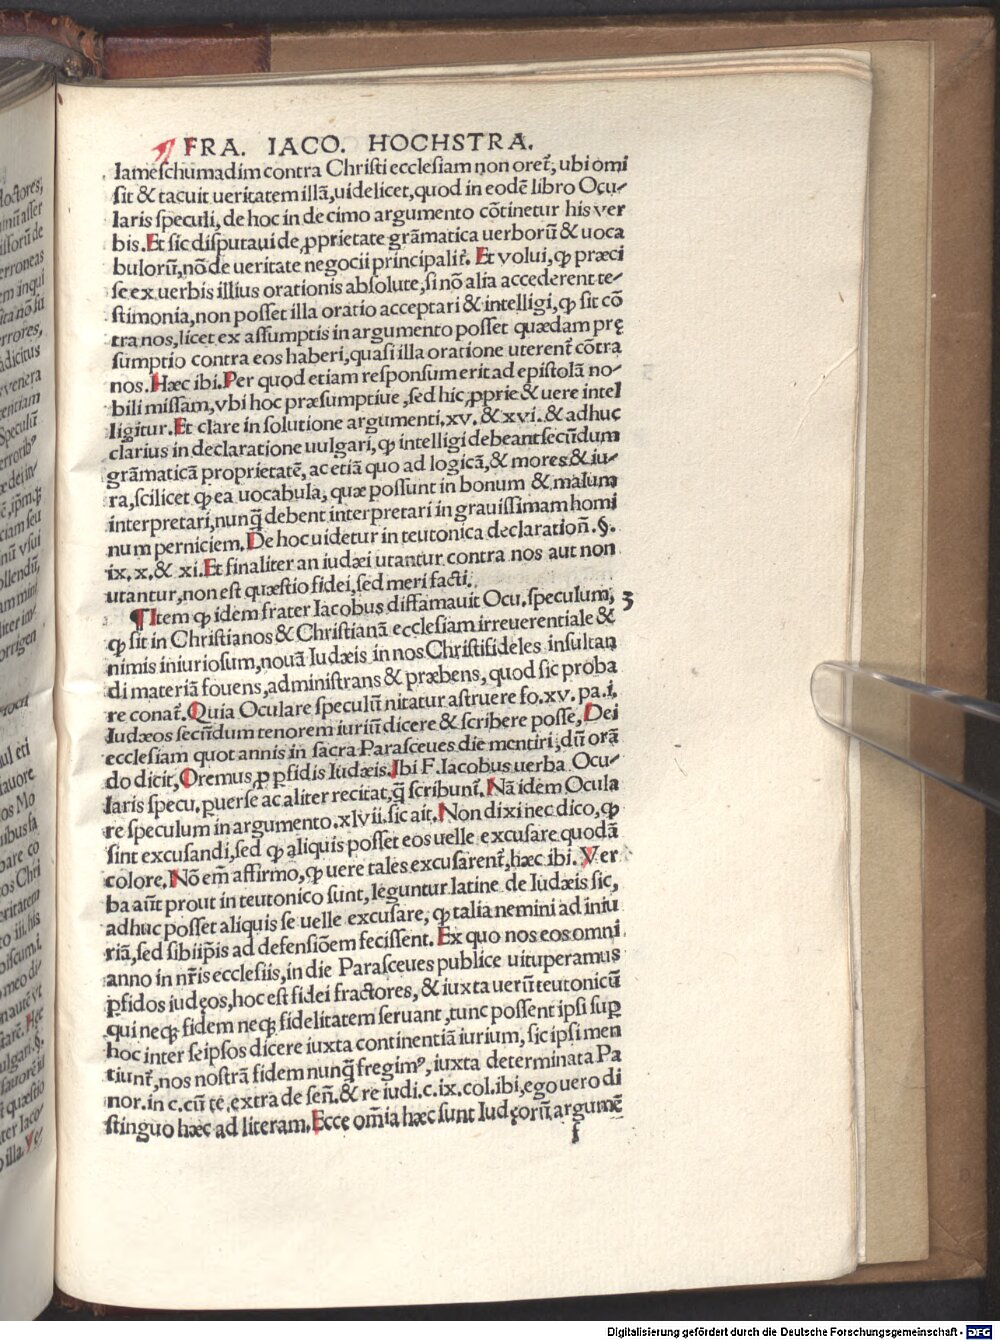 ¶ FRA. IACO. HOCHSTRA.
lameſchumadim contra Chriſti eccleſiam non oret᷑, ubi omi
ſit & tacuit ueritatem illã, uidelicet, quod in eodẽ libro Ocu⸗
laris ſpeculi, de hoc in de cimo argumento cõtinetur his ver
bis. Et ſic diſputaui de ꝓprietate grãmatica uerborũ & uoca
bulorũ, nõ de ueritate negocii principalit᷑. Et volui, ꝙ præci
ſe ex uerbis illius orationis abſolute, ſi nõ alia accederent te⸗
ſtimonia, non poſſet illa oratio acceptari & intelligi, ꝙ ſit cõ
tra nos, licet ex aſſumptis in argumento poſſet quædam prę
ſumptio contra eos haberi, quaſi illa oratione uterent᷑ cõtra
nos. Hæc ibi. Per quod etiam reſponſum erit ad epiſtolã no⸗
bili miſſam, vbi hoc præſumptiue, ſed hic, ꝓprie & uere intel
ligitur. Et clare in ſolutione argumenti. xv. & xvi. & adhuc
clarius in declaratione uulgari, ꝙ intelligi debeant ſecũdum
grãmaticã proprietatẽ, ac etiã quo ad logicã, & mores & iu⸗
ra, ſcilicet ꝙ ea uocabula, quæ poſſunt in bonum & malum
interpretari, nunq̃ debent interpretari in grauiſſimam homi
num perniciem. De hoc uidetur in teutonica declaratioñ. §.
ix. x. & xi. Et finaliter an iudæi utantur contra nos aut non
utantur, non eſt quæſtio fidei, ſed meri facti.
¶ Item ꝙ idem frater Iacobus diffamauit Ocu. ſpeculum, 3
ꝙ ſit in Chriſtianos & Chriſtianã eccleſiam irreuerentiale &
nimis iniurioſum, nouã Iudæis in nos Chriſtifideles inſultan
di materiã fouens, adminiſtrans & præbens, quod ſic proba
re conat᷑. Quia Oculare ſpeculũ nitatur aſtruere fo. xv. pa. i.
Iudæos ſecũdum tenorem iuriũ dicere & ſcribere poſſe, Dei
eccleſiam quot annis in ſacra Paraſceues die mentiri, dũ orã
do dicit, Oremus ꝓ ꝑfidis Iudæis. Ibi F. Iacobus uerba Ocu⸗
laris ſpecu. ꝑuerſe ac aliter recitat, q̃ ſcribunt᷑. Nã idem Ocula
re ſpeculum in argumento. xlvii. ſic ait. Non dixi nec dico, ꝙ
ſint excuſandi, ſed ꝙ aliquis poſſet eos uelle excuſare quodã
colore. Nõ em̃ affirmo, ꝙ uere tales excuſarent᷑, hæc ibi. Ver
ba aũt prout in teutonico ſunt, leguntur latine de Iudæis ſic,
adhuc poſſet aliquis ſe uelle excuſare, ꝙ talia nemini ad iniu
riã, ſed ſibiip̃is ad defenſiõem feciſſent. Ex quo nos eos omni
anno in nr̃is eccleſiis, in die Paraſceues publice uituperamus
ꝑfidos iudęos, hoc eſt fidei fractores, & iuxta uerũ teutonicũ
qui neqꝫ fidem neqꝫ fidelitatem ſeruant, tunc poſſent ipſi ſuꝑ
hoc inter ſeipſos dicere iuxta continentiã iurium, ſic ipſi men
tiunt᷑, nos noſtrã fidem nunq̃ fregimꝰ, iuxta determinata Pa
nor. in c. cũ te, extra de ſeñ. & re iudi. c. ix. col. ibi, ego uero di
ſtinguo hæc ad literam. Ecce om̃ia hæc ſunt Iudęorũ argumẽ
f
Digitalisierung gefördert durch die Deutsche Forschungsgemeinschaft - DFG